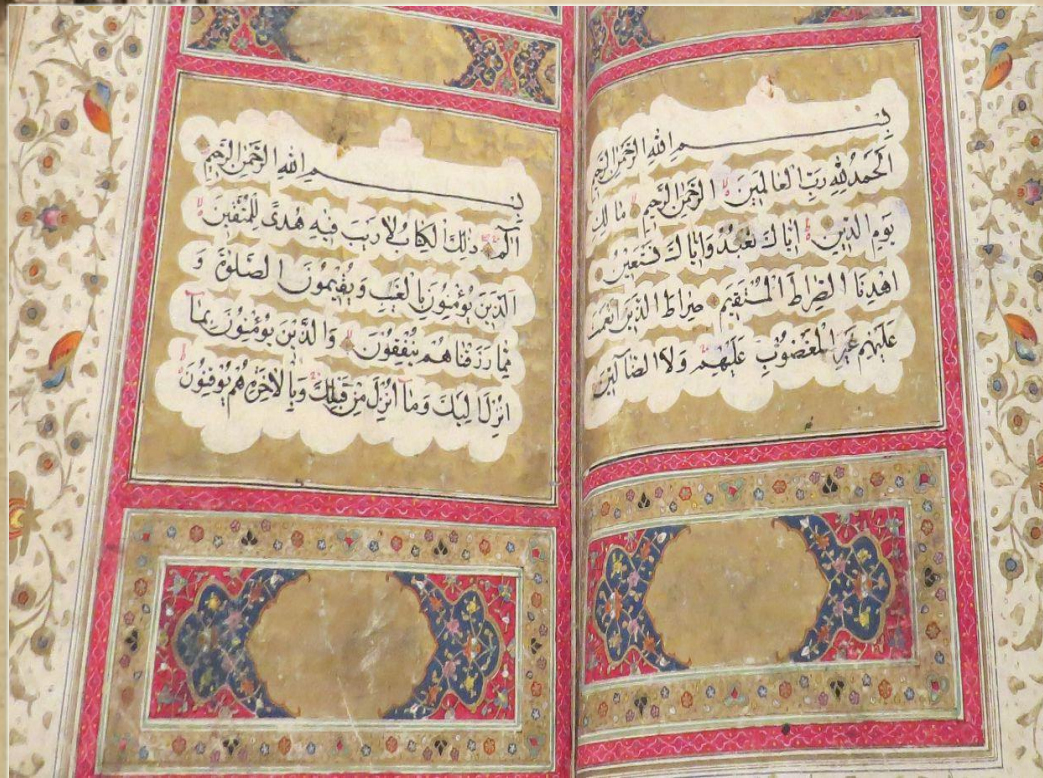 بِسْمِ اللهِ الرَّحْمٰنِ الرَّحِيمِ
اَلْحَمْدُ لِلّٰهِ رَبِّ الْعَالَمِينَ الرَّحْمٰنِ الرَّحِيمِ مَالِكِ
يَوْمِ الدِّينِ اِيَّاكَ نَعْبُدُ وَاِيَّاكَ نَسْتَعِينُ
اِهْدِنَا الصِّرَاطَ الْمُسْتَقِيمَ صِرَاطَ الَّذِينَ اَنْعَمْتَ
عَلَيْهِمْ غَيْرِ الْمَغْضُوبِ عَلَيْهِمْ وَلَا الضَّآلِّينَ
بِسْمِ اللهِ الرَّحْمٰنِ الرَّحِيمِ
الٓمٓ ذٰلِكَ الْكِتَابُ لَا رَيْبَ فِيهِ هُدًى لِلْمُتَّقِينَ
اَلَّذِينَ يُؤْمِنُونَ بِالْغَيْبِ وَيُقِيمُونَ الصَّلٰوةَ وَ
مِمَّا رَزَقْنَاهُمْ يُنْفِقُونَ وَالَّذِينَ يُؤْمِنُونَ بِمَآ
اُنْزِلَ اِلَيْكَ وَمَآ اُنْزِلَ مِنْ قَبْلِكَ وَبِالْاٰخِرَةِ هُمْ يُوقِنُونَ